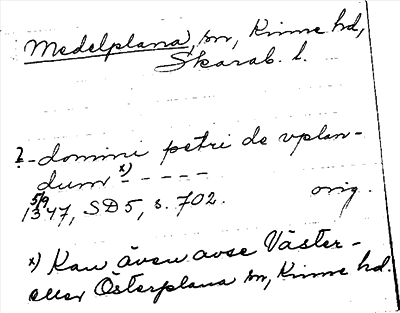 Medelplana, sn, Kinne hd,
Skarab. l.
?- domini petri de vplan-
dum x) - - - - -
5/9
1347, SD5, s. 702. orig.
x) Kan även avse Väster-
eller Österplana sn, Kinne hd.